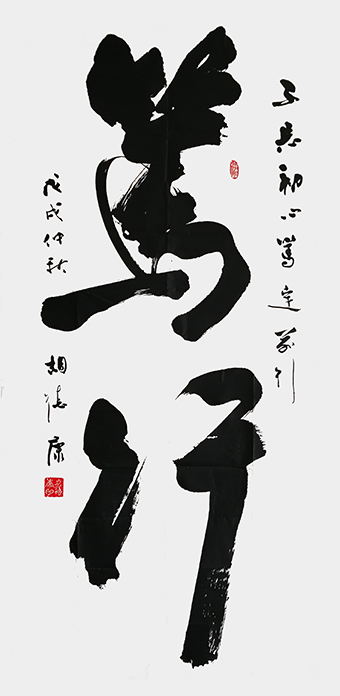 不忘初心篤定前行
篤行
戊戌仲秋 胡德康